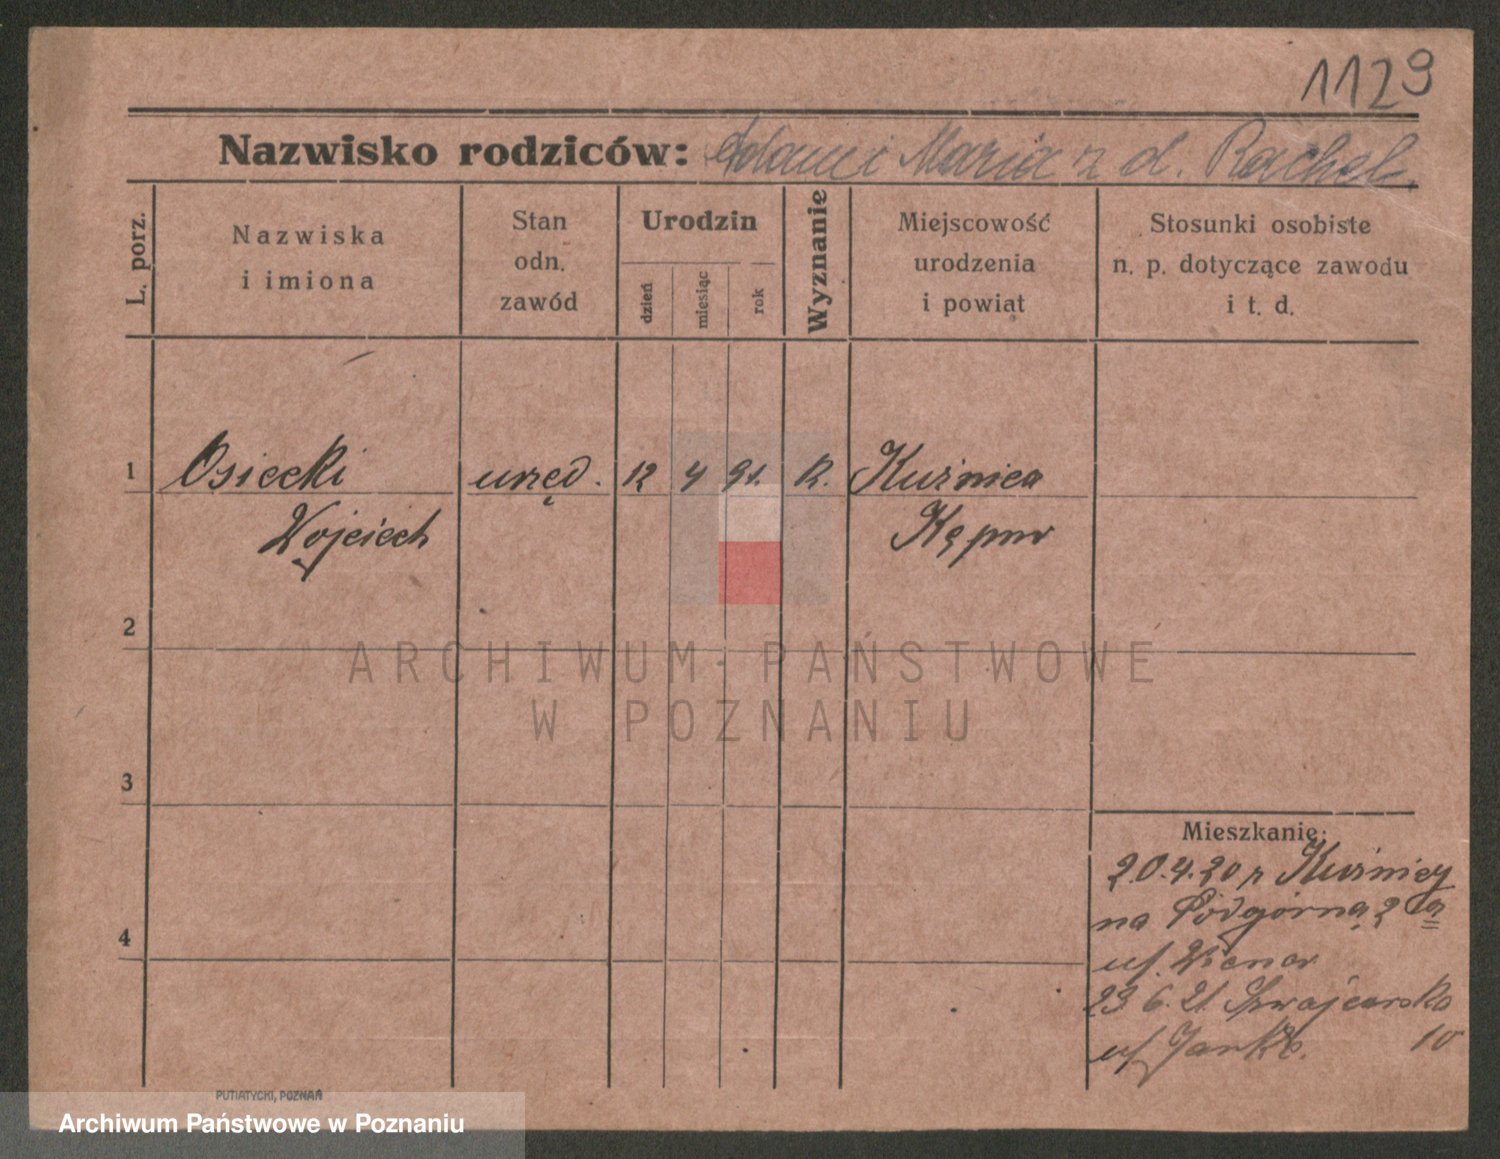 1129
Nazwisko rodziców: Adam i Maria z d. Rachel.
L. porz.
Nazwiska
i imiona
Stan
odn.
zawód
Urodzin
dzień
miesiąc
rok
Wyznanie
Miejscowość
urodzenia
i powiat
Stosunki osobiste
n. p. dotyczące zawodu
i t. d.
1 Osiecki urzęd. 12 4 91. R. Kuźnica
Wojciech Kępno
2
ARCHIWUM PAŃSTWOWE
W POZNANIU
3
Mieszkanie:
20.4.20 z Kuźnicy
4
na Podgórną 2a
uf.
23.6.21 Szwajcarska
10
uf.
PUTIATYCKI, POZNAŃ
Archiwum Państwowe w Poznaniu